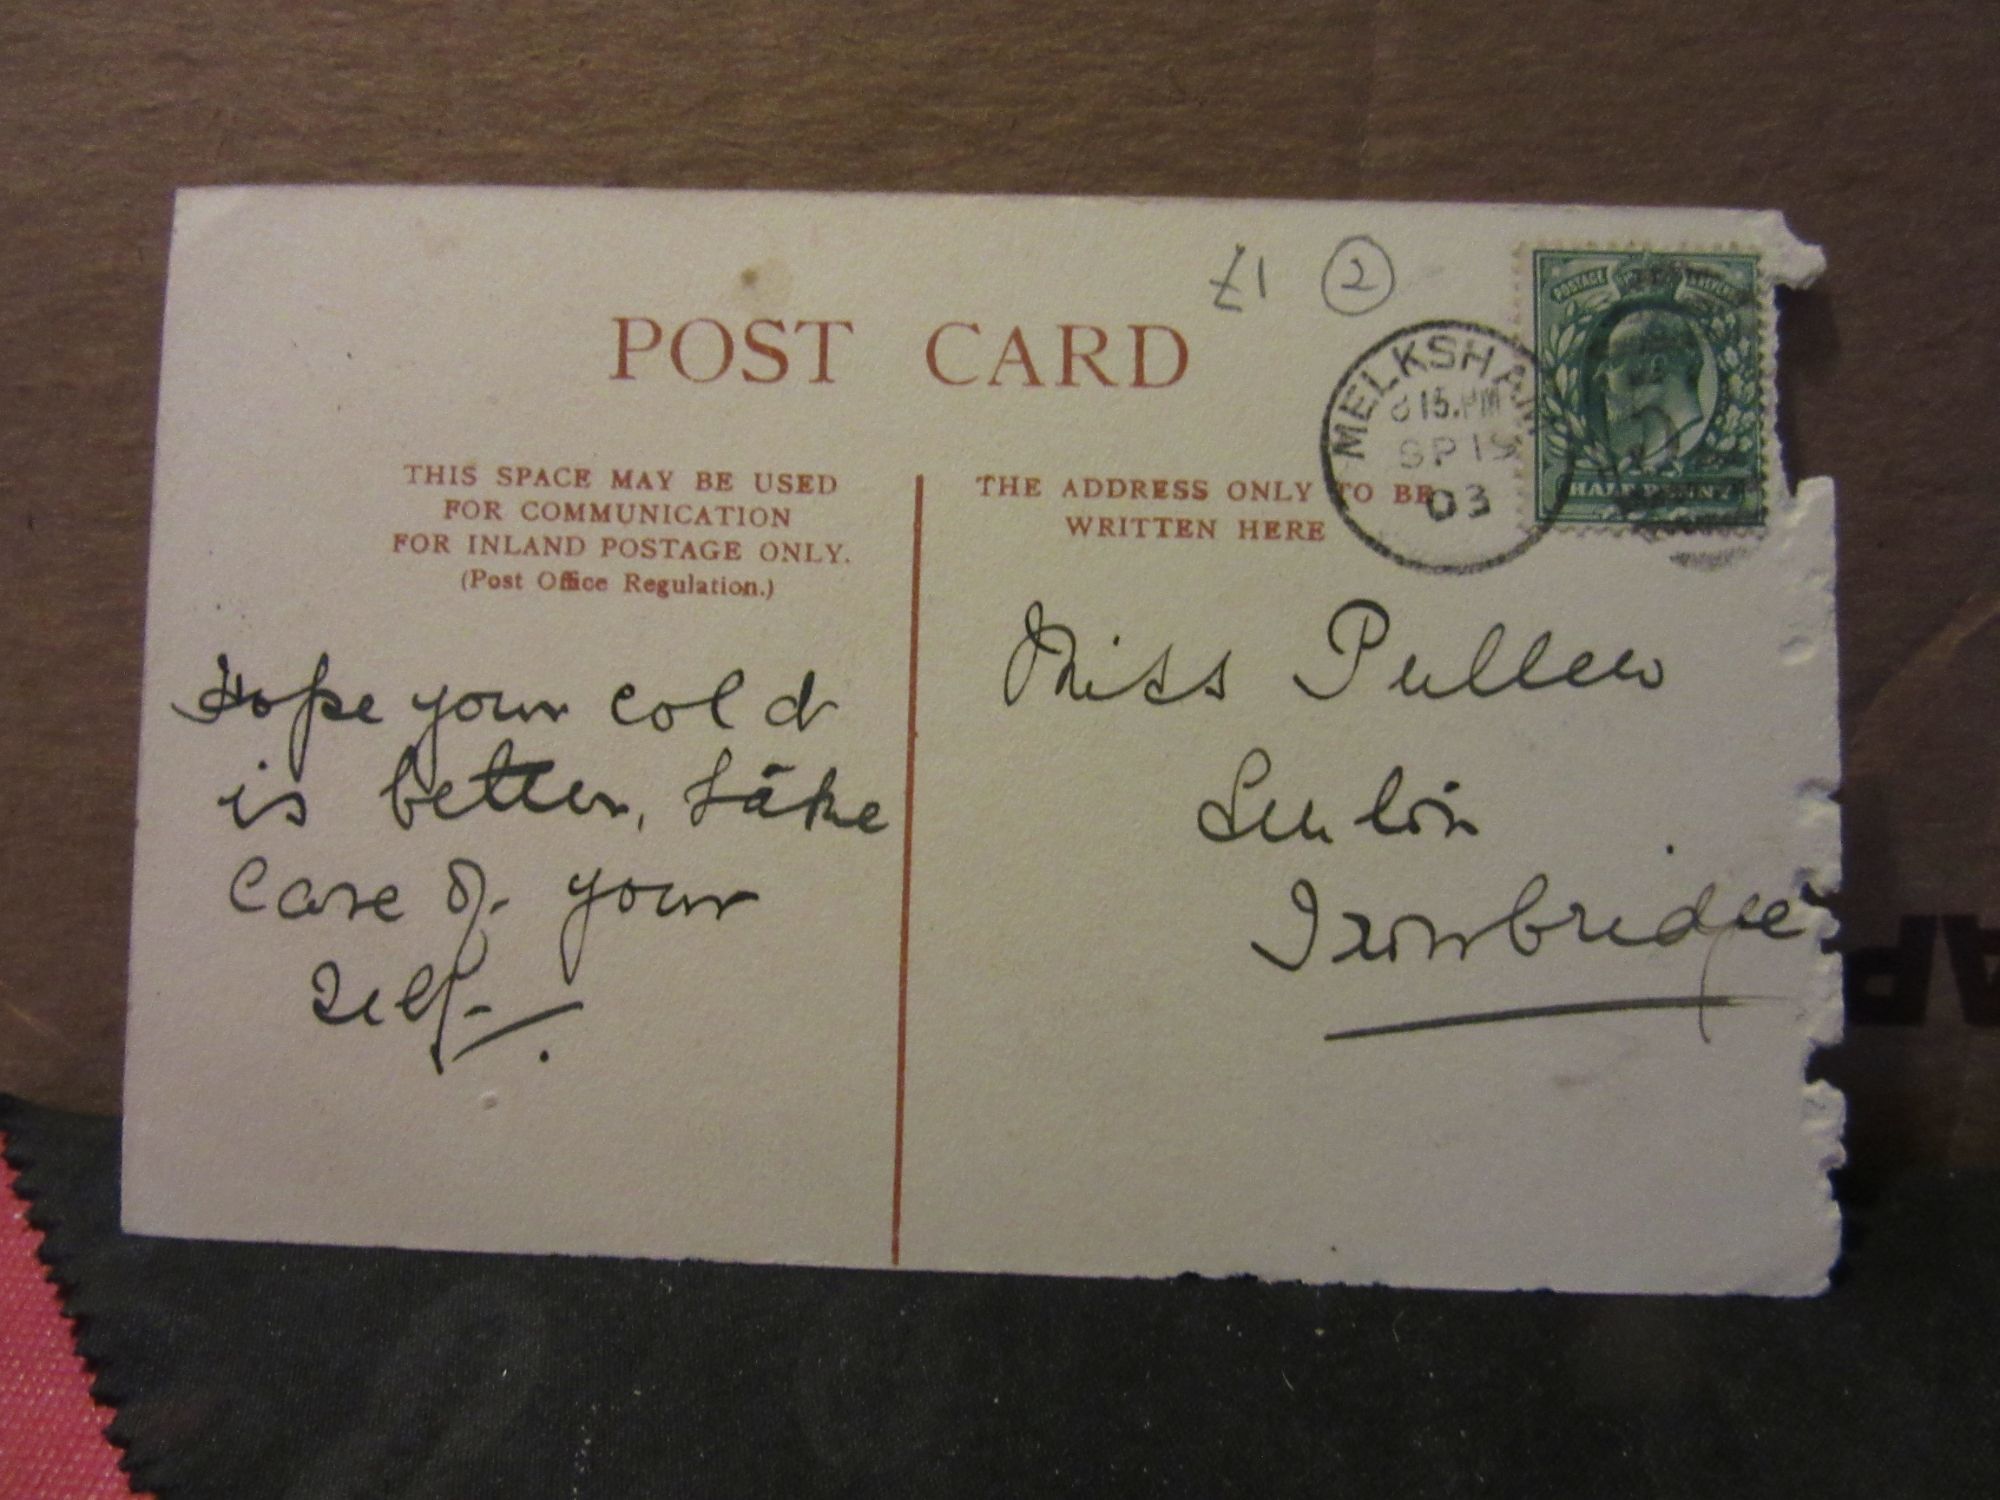 £1 2
POST CARD
MELKSHAM
15.PM
SP 19
03
POSTAGE
HALFPENNY
THIS SPACE MAY BE USED
FOR COMMUNICATION
FOR INLAND POSTAGE ONLY.
(Post Office Regulation.)
THE ADDRESS ONLY TO BE
WRITTEN HERE
Hope your cold
is better, take
care of your
self.
Miss Pullen
Ironbridge
AP